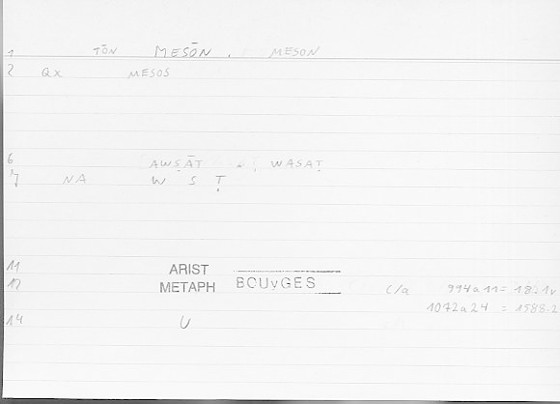 1 TŌN MESŌN . MESON
2 QX MESOS
6 AWSĀṬ . , WASAṬ
7 NA W S Ṭ
11 ARIST
12 METAPH BOUYGES C/a 994a11=
1072a24 = 1588.2
14 U